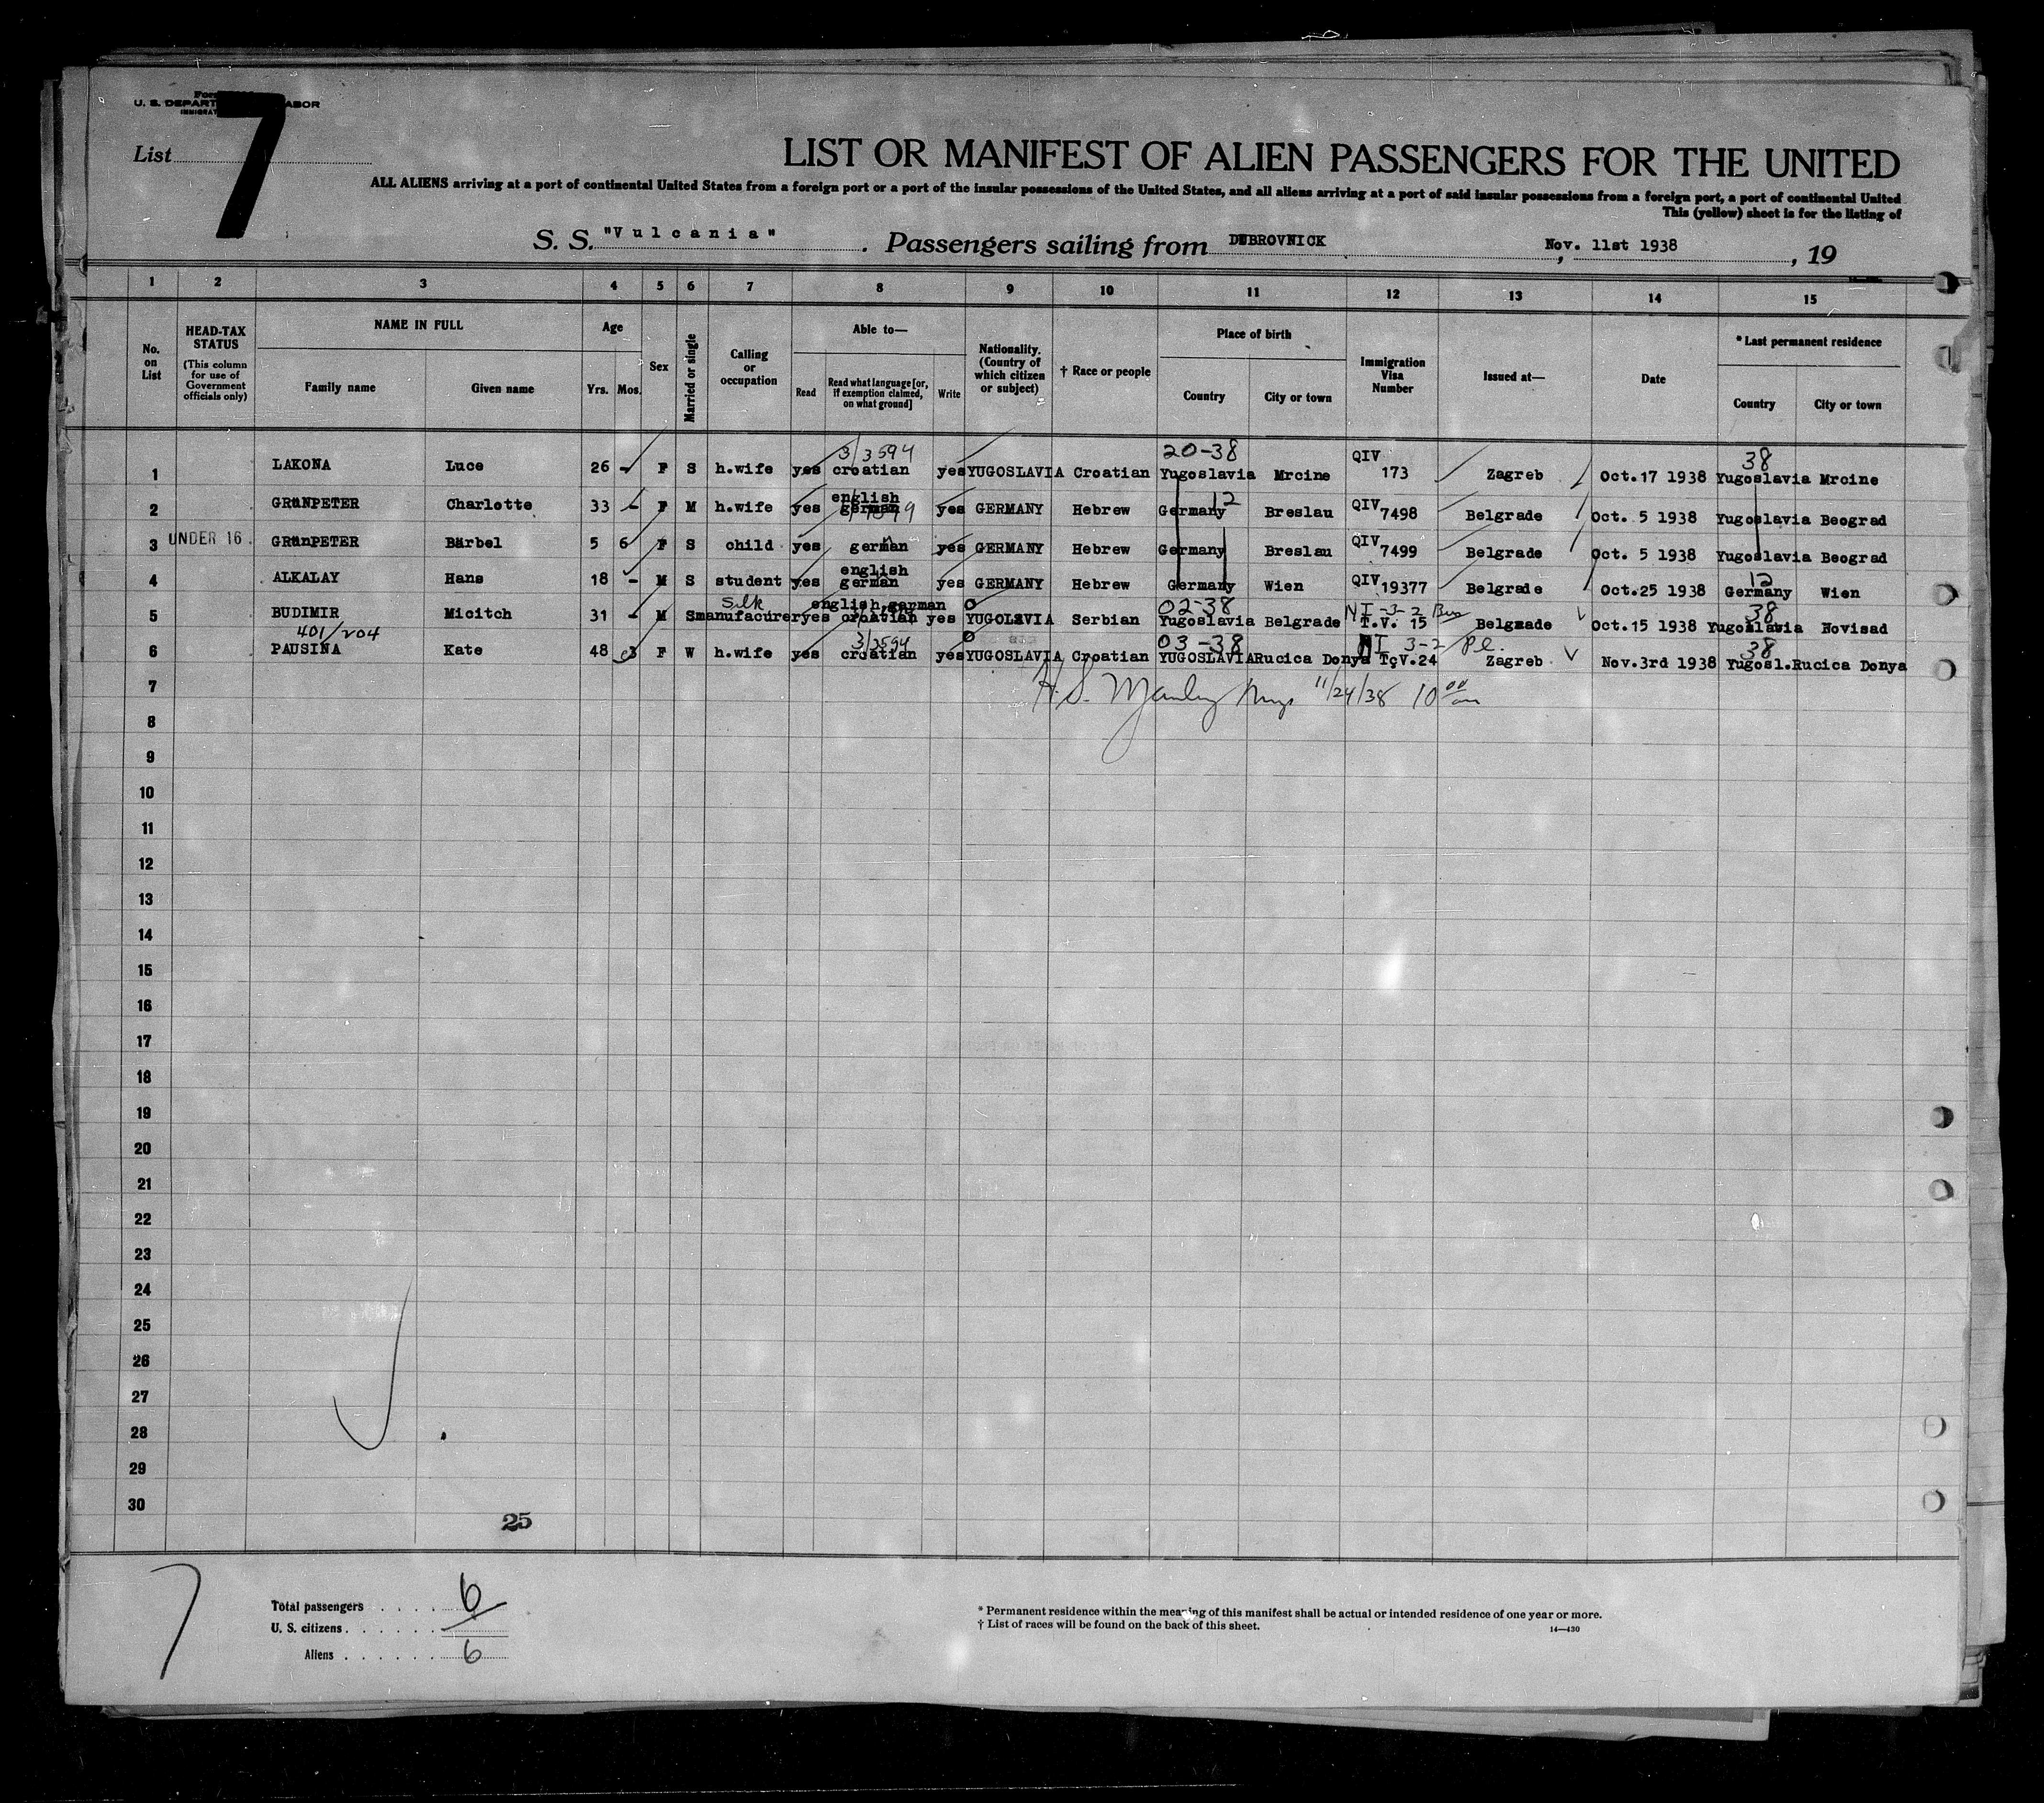 U. S. DEPART ABOR
7
List
LIST OR MANIFEST OF ALIEN PASSENGERS FOR THE UNITED
ALL ALIENS arriving at a port of continental United States from a foreign port or a port of the insular possessions of the United States, and all aliens arriving at a port of said insular possessions from a foreign port, a port of continental United
This (yellow) sheet is for the listing of
S. S. "Vulcania". Passengers sailing from DUBROVNICK, Nov. 11st 1938, 19
1 2 3 4 5 6 7 8 9 10 11 12 13 14 15
No. on List
HEAD-TAX STATUS
(This column for use of Government officials only)
NAME IN FULL
Family name Given name
Age
Yrs. Mos.
Sex
Married or single
Calling or occupation
Able to—
Read Read what language [or, if exemption claimed, on what ground] Write
Nationality. (Country of which citizen or subject)
† Race or people
Place of birth
Country City or town
Immigration Visa Number
Issued at—
Date
* Last permanent residence
Country City or town
3/3594 20-38 38
1 LAKONA Luce 26 - F S h.wife yes croatian yes YUGOSLAVIA Croatian Yugoslavia Mrcine QIV 173 Zagreb Oct.17 1938 Yugoslavia Mrcine
english 12
2 GRUNPETER Charlotte 33 - F M h.wife yes german yes GERMANY Hebrew Germany Breslau QIV 7498 Belgrade Oct. 5 1938 Yugoslavia Beograd
3 UNDER 16 GRUnPETER Bärbel 5 6 F S child yes german yes GERMANY Hebrew Germany Breslau QIV 7499 Belgrade Oct. 5 1938 Yugoslavia Beograd
english 12
4 ALKALAY Hans 18 - M S student yes german yes GERMANY Hebrew Germany Wien QIV 19377 Belgrade Oct.25 1938 Germany Wien
Silk english german 02-38 NI-3-2 Bus 38
5 BUDIMIR Micitch 31 - M S manufacurer yes croatian yes YUGOLSVIA Serbian Yugoslavia Belgrade T.V. 15 Belgrade Oct.15 1938 Yugoslavia Novisad
401/204 3/3594 03-38 NI 3-2 Pl. 38
6 PAUSINA Kate 48 3 F W h.wife yes croatian yes YUGOSLAVIA Croatian YUGOSLAVIA Rucica Donya T.V.24 Zagreb Nov.3rd 1938 Yugosl. Rucica Donya
7
H.S. 11/24/38 10 00 am
8
9
10
11
12
13
14
15
16
17
18
19
20
21
22
23
24
25
26
27
28
29
30
25
7
Total passengers 6
U. S. citizens
Aliens 6
* Permanent residence within the meaning of this manifest shall be actual or intended residence of one year or more.
† List of races will be found on the back of this sheet.
14—430